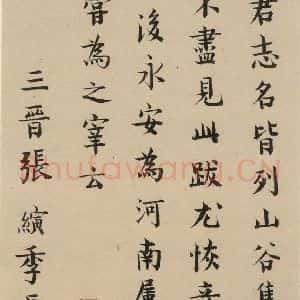 君志名皆列山谷集
不盡見此跋尤恢奇
後永安為河南屬
嘗為之宰去
三晉張縯季長
shufawang.CN